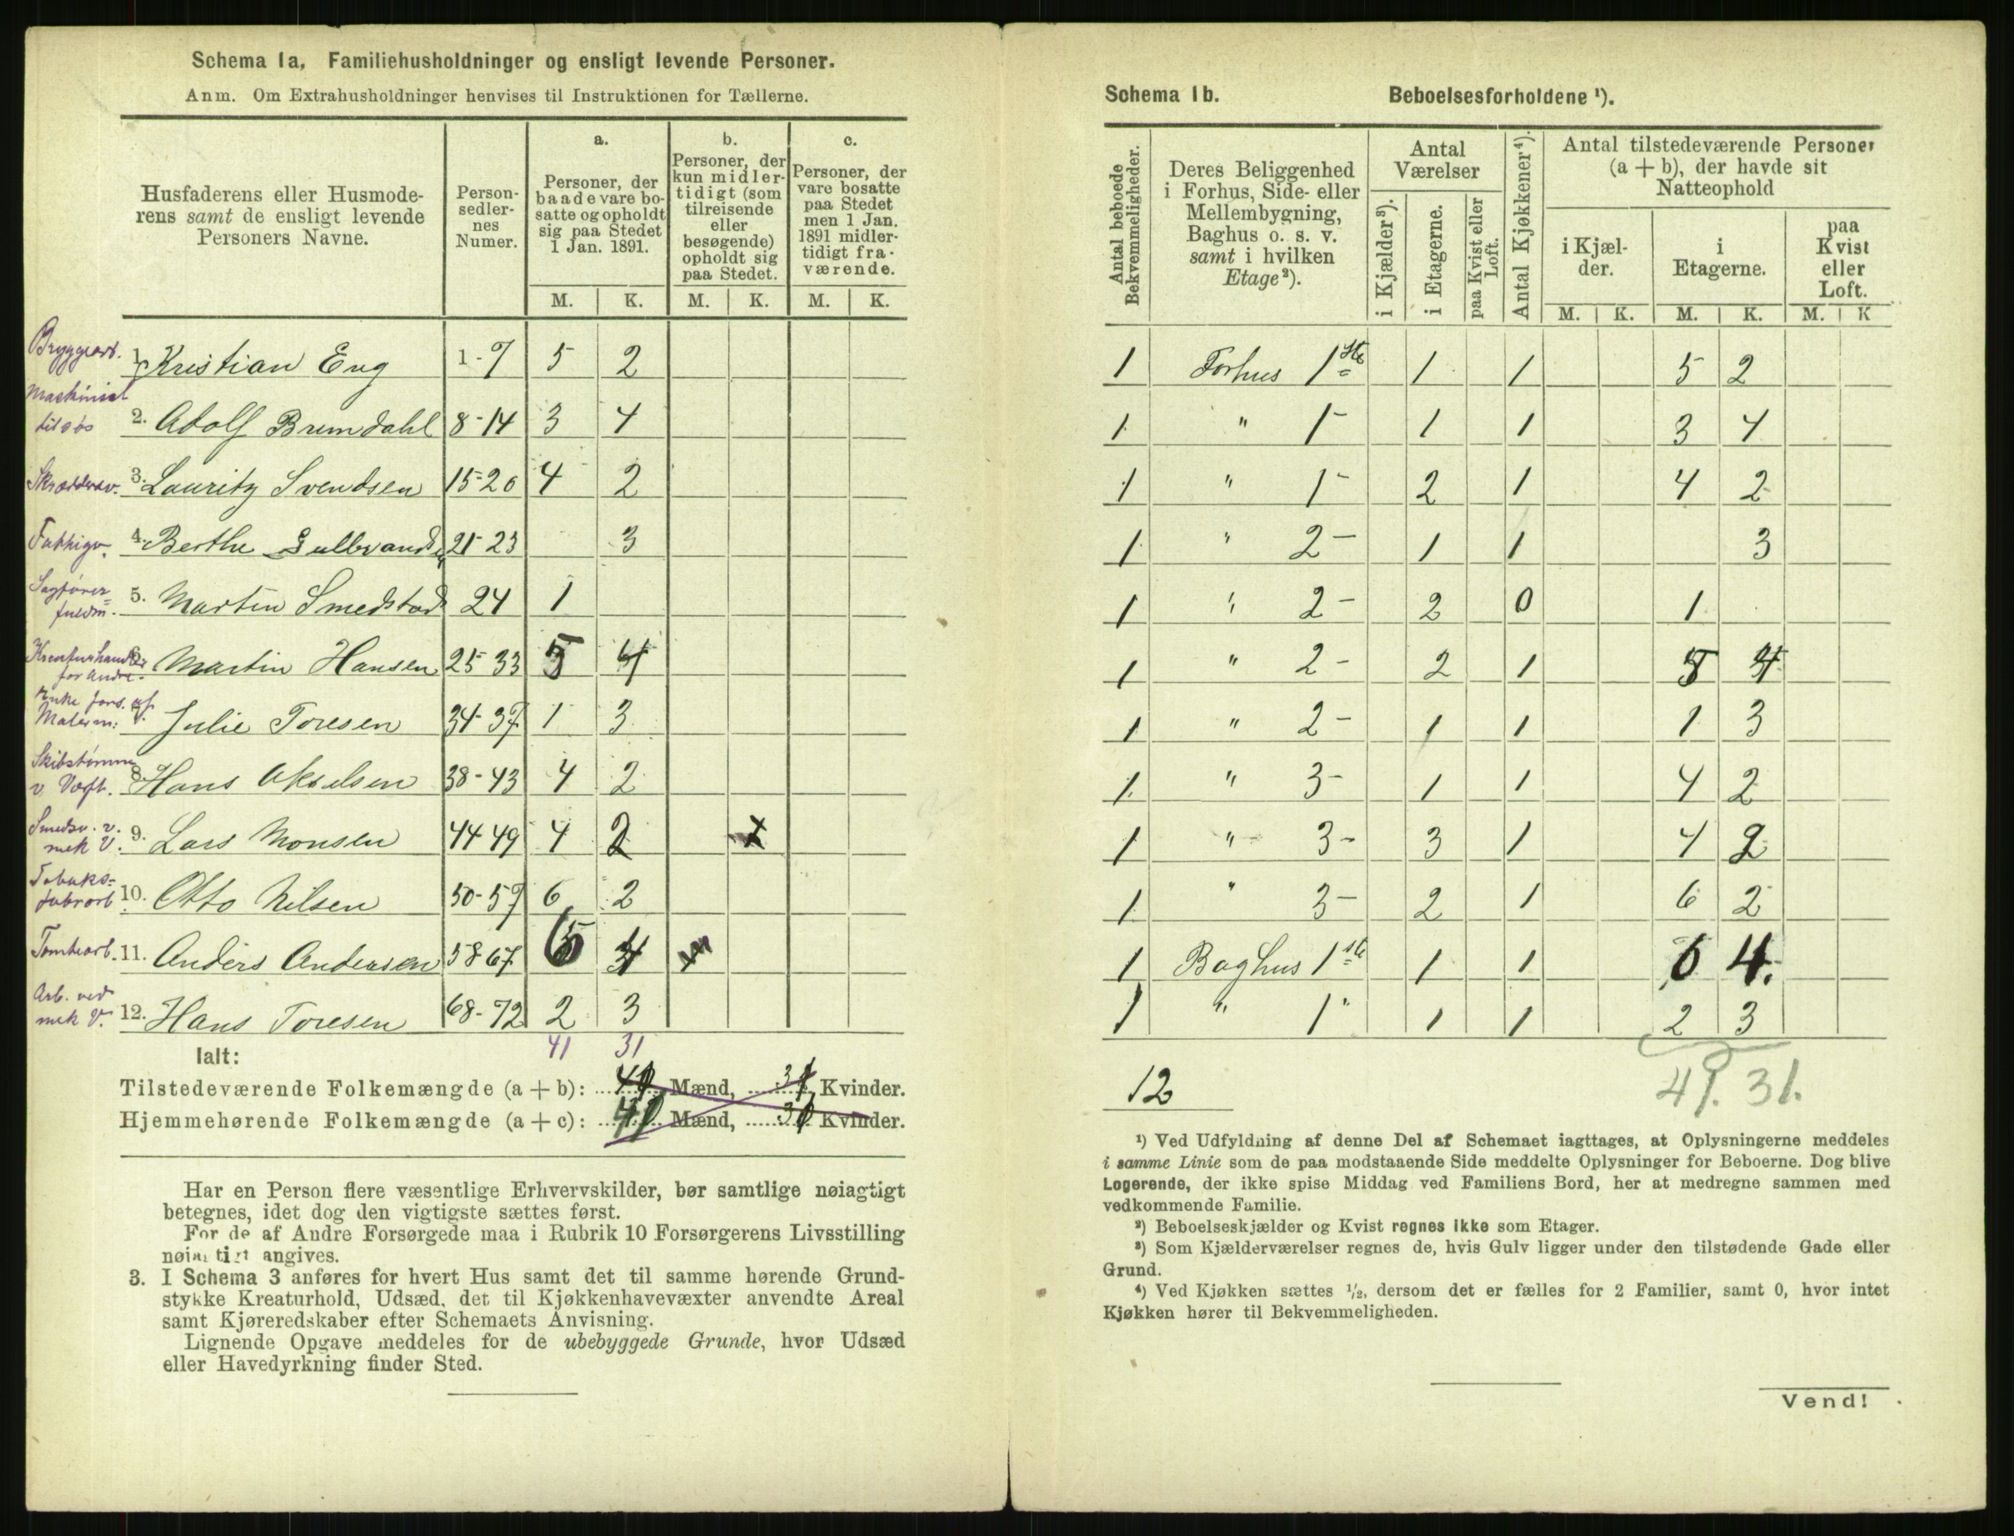 Schema 1a. Familiehusholdninger og ensligt levende Personer.
Anm. Om Extrahusholdninger henvises til Instruktionen for Tællerne.
Husfaderens eller Husmode-
rens samt de ensligt levende
Personers Navne.
Person-
sedler-
nes
Numer.
a.
Personer, der
baade vare bo-
satte og opholdt
sig paa Stedet
1 Jan. 1891.
b.
Personer, der
kun midler-
tidigt (som
tilreisende
eller
besøgende)
opholdt sig
paa Stedet.
c.
Personer, der
vare bosatte
paa Stedet
men 1 Jan.
1891 midler-
tidigt fra-
værende.
M. K. M. K. M. K.
Bryggearb. 1. Kristian Eng 1-7 5 2
Maskinist
tilsøs 2. Adolf Brundahl 8-14 3 4
Skræddersv. 3. Lauritz Svendsen 15-20 4 2
Fattigv. 4. Berthe Gulbrands 21-23 3
Sagfører=
fuldm. 5. Martin Smedstad 24 1
Kreaturhandler
for Andre. 6. Martin Hansen 25-33 5 4
Enke fors. af
Malerm: 7. Julie Toresen 34-37 1 3
Skibstømm
v Værft. 8. Hans Akselsen 38-43 4 2
Smedsv. v.
mek V. 9. Lars Monsen 44 49 4 2
Tobaks=
fabrarb. 10. Otto Nilsen 50-57 6 2
Tomtearb. 11. Anders Andersen 58 67 6 4
Arb. ved
mek V. 12. Hans Toresen 68-72 2 3
Ialt: 41 31
Tilstedeværende Folkemængde (a + b): Mænd, Kvinder.
Hjemmehørende Folkemængde (a + c): Mænd, Kvinder.
Har en Person flere væsentlige Erhvervskilder, bør samtlige nøiagtigt
betegnes, idet dog den vigtigste sættes først.
For de af Andre Forsørgede maa i Rubrik 10 Forsørgerens Livsstilling
nøiagtigt angives.
3. I Schema 3 anføres for hvert Hus samt det til samme hørende Grund-
stykke Kreaturhold, Udsæd, det til Kjøkkenhavevæxter anvendte Areal
samt Kjøreredskaber efter Schemaets Anvisning.
Lignende Opgave meddeles for de ubebyggede Grunde, hvor Udsæd
eller Havedyrkning finder Sted.
Schema 1b. Beboelsesforholdene ¹).
Antal beboede
Bekvemmeligheder.
Deres Beliggenhed
i Forhus, Side- eller
Mellembygning,
Baghus o. s. v.
samt i hvilken
Etage²).
Antal
Værelser
i Kjælder³).
i Etagerne.
paa Kvist eller
Loft.
Antal Kjøkkener⁴).
Antal tilstedeværende Personer
(a + b), der havde sit
Natteophold
i Kjæl-
der.
i
Etagerne.
paa
Kvist
eller
Loft.
M. K. M. K. M. K
1 Forhus 1ste 1 1 5 2
1 " 1- 1 1 3 4
1 " 1- 2 1 4 2
1 " 2- 1 1 3
1 " 2- 2 0 1
1 " 2- 2 1 5 4
1 " 2- 1 1 1 3
1 " 3- 1 1 4 2
1 " 3- 3 1 4 2
1 " 3- 2 1 6 2
1 Baghus 1ste 1 1 6 4.
1 " 1" 1 1 2 3
12 41. 31.
¹) Ved Udfyldning af denne Del af Schemaet iagttages, at Oplysningerne meddeles
i samme Linie som de paa modstaaende Side meddelte Oplysninger for Beboerne. Dog blive
Logerende, der ikke spise Middag ved Familiens Bord, her at medregne sammen med
vedkommende Familie.
²) Beboelseskjælder og Kvist regnes ikke som Etager.
³) Som Kjælderværelser regnes de, hvis Gulv ligger under den tilstødende Gade eller
Grund.
⁴) Ved Kjøkken sættes ½, dersom det er fælles for 2 Familier, samt 0, hvor intet
Kjøkken hører til Bekvemmeligheden.
Vend!